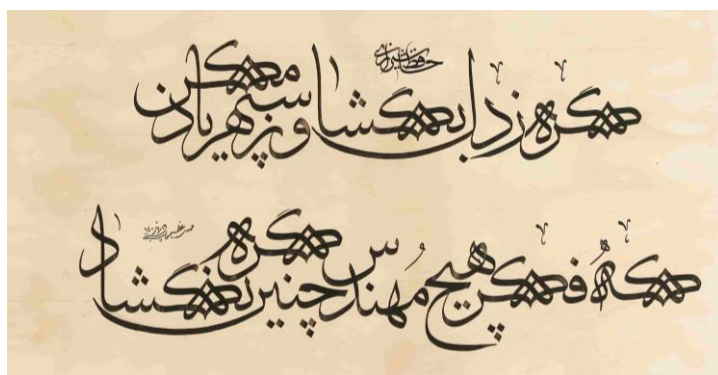 حافظ شیرازی
گره ز دل بگشا و ز سپهر یاد مکن
که فکر هیچ مُهندس چنین گره نگشاد